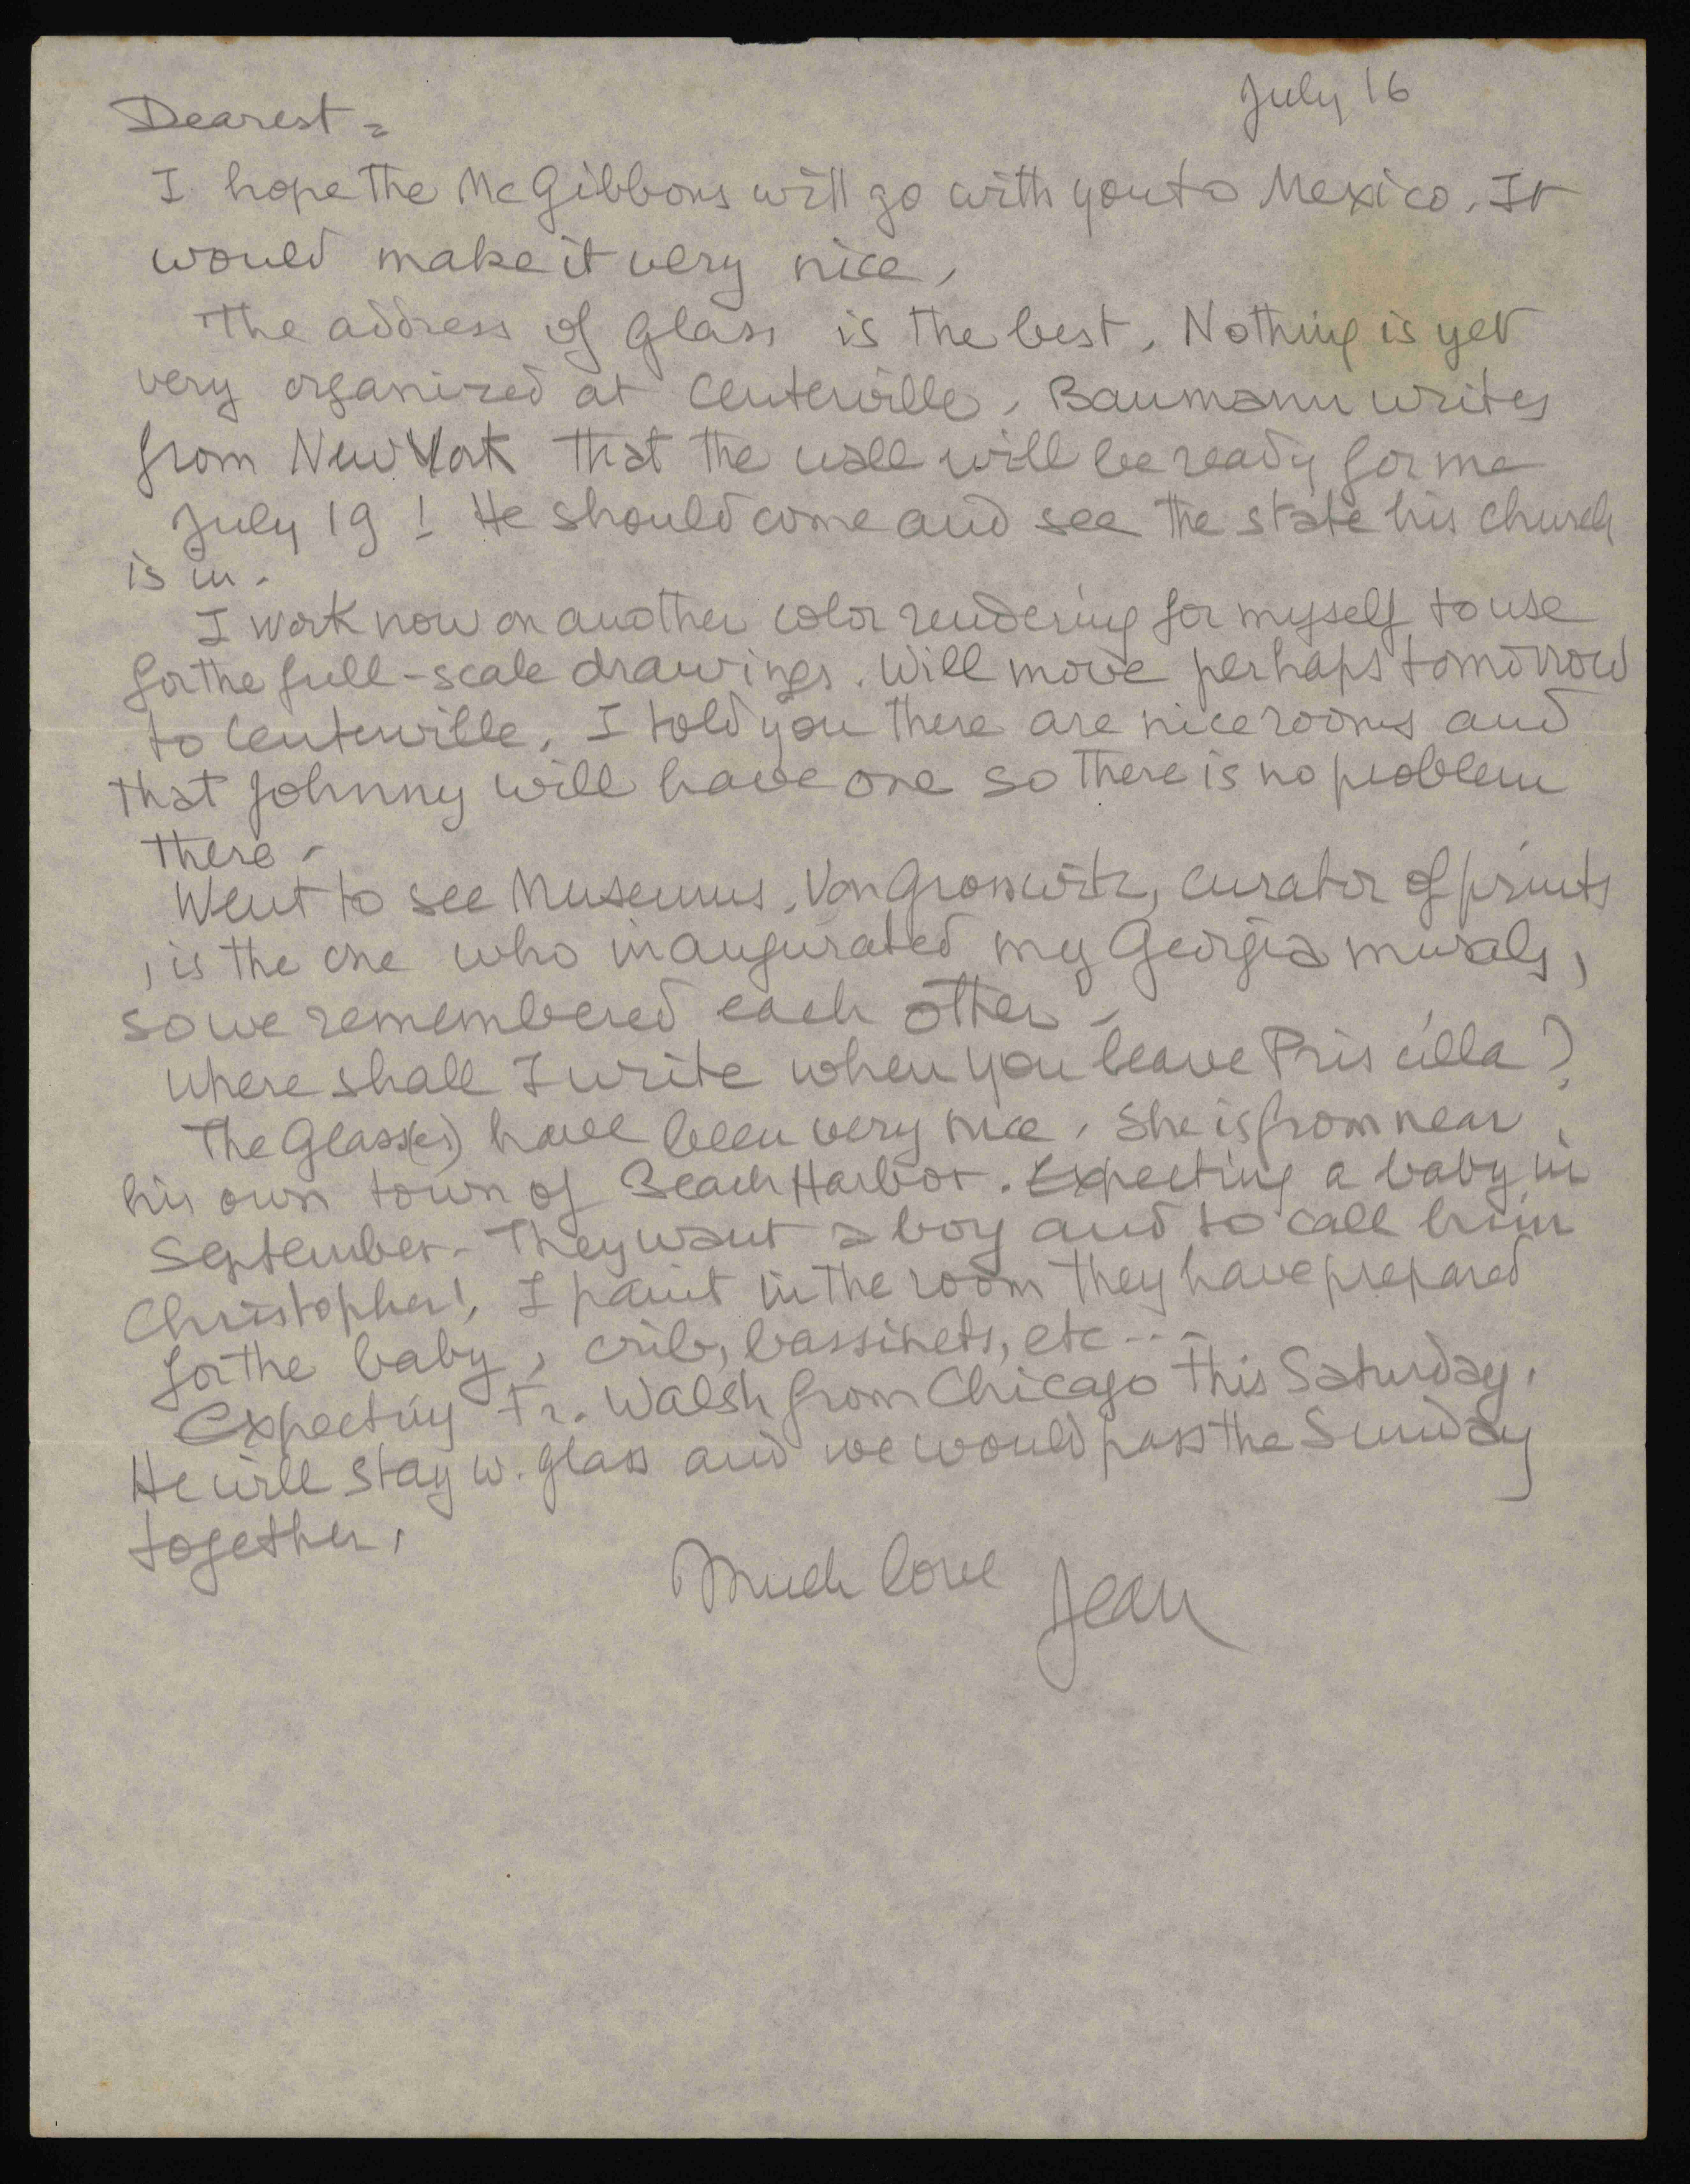 July 16
Dearest -
I hope the McGibbons will go with you to Mexico. It
would make it very nice.
The address of Glass is the best. Nothing is yet
very organized at Centerville. Baumann writes
from New York that the wall will be ready for me
July 19! He should come and see the state his church
is in.
I work now on another color rendering for myself to use
for the full-scale drawings. Will move perhaps tomorrow
to Centerville. I told you there are nice rooms and
that Johnny will have one so there is no problem
there -
Went to see Museums. Von Groschwitz, curator of prints
, is the one who inaugurated my Georgia murals,
so we remembered each other -
Where shall I write when you leave Priscilla?
The Glass(es) have been very nice. She is from near
his own town of Beach Harbor. Expecting a baby in
September - They want a boy and to call him
Christopher!. I paint in the room they have prepared
for the baby, crib, bassinets, etc ---
Expecting Fr. Walsh from Chicago this Saturday.
He will stay w. Glass and we would pass the Sunday
together.
Much love Jean